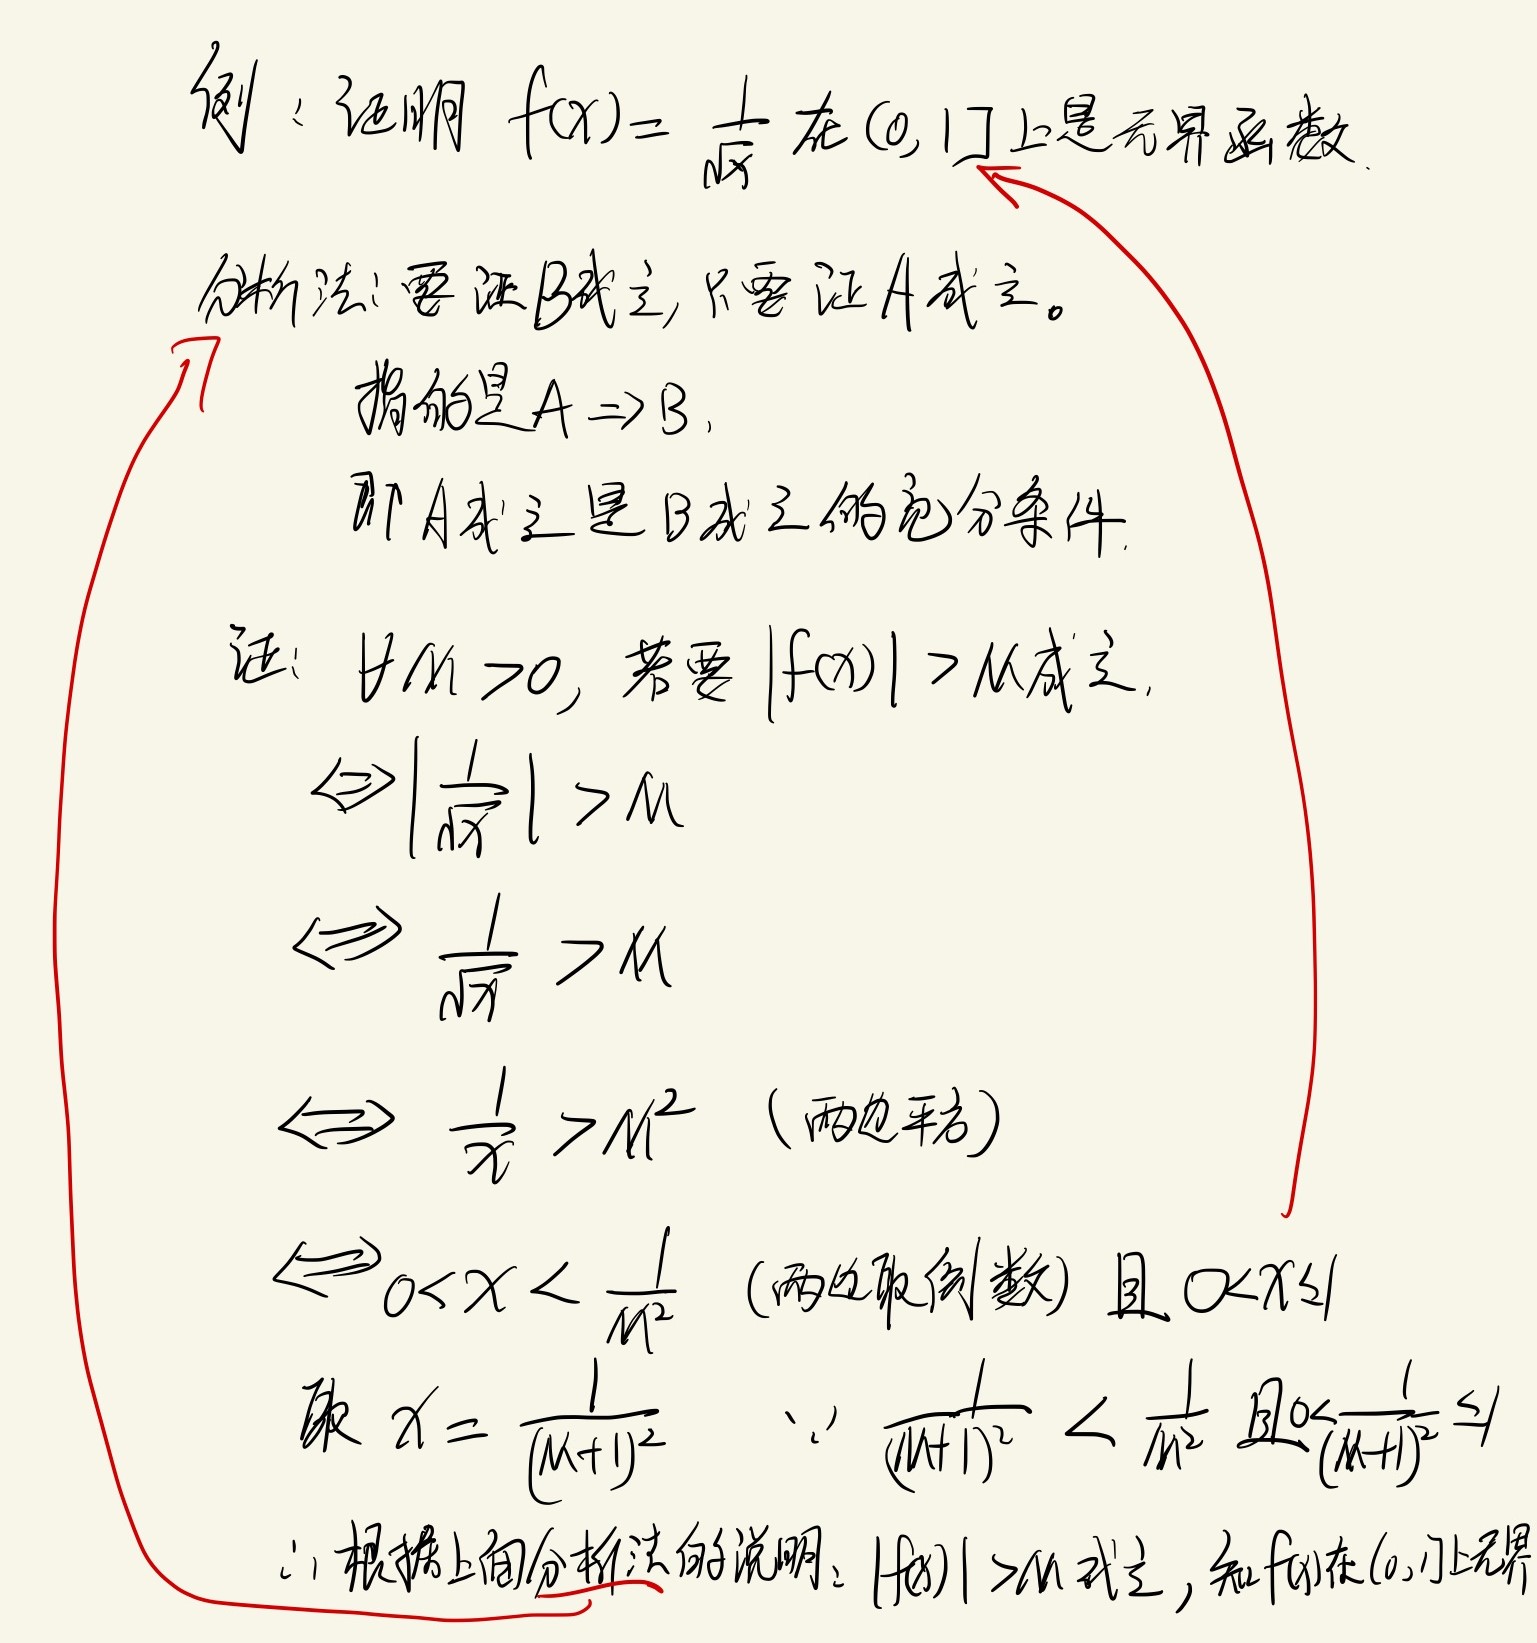 例：证明 f(x) = 1/√x 在(0,1]上是无界函数.
分析法：要证B成立,只要证A成立。
指的是A⇒B,
即A成立是B成立的充分条件.
证：∀M>0, 若要|f(x)|>M成立,
⇔|1/√x|>M
⇔ 1/√x >M
⇔ 1/x >M² (两边平方)
⇔ 0<x<1/M² (两边取倒数) 且 0<x≤1
取 x = 1/(M+1)² ∵ 1/(M+1)² < 1/M² 且0<1/(M+1)²≤1
∴根据上面分析法的说明：|f(x)|>M成立,知f(x)在(0,1]上无界